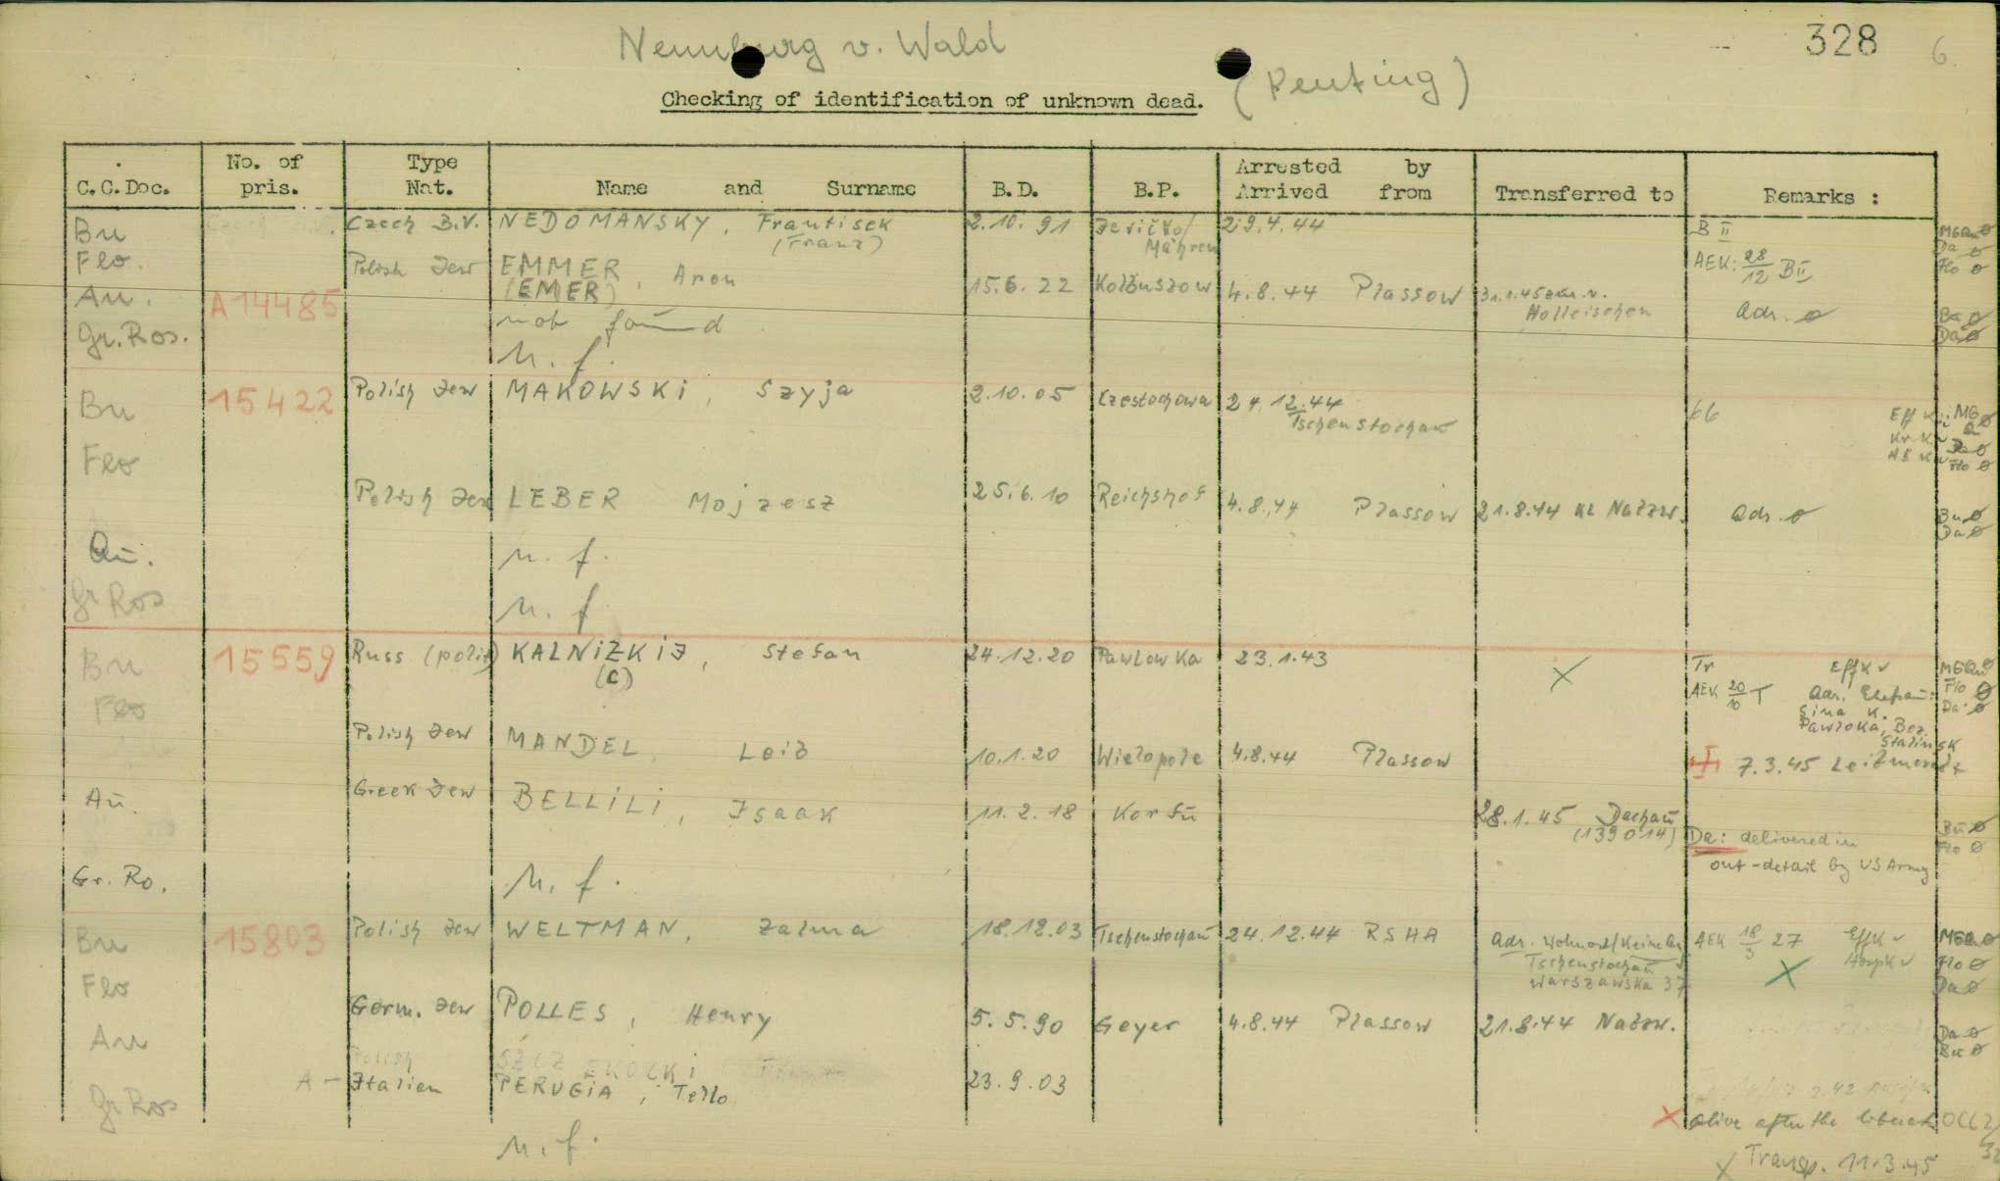 328 6
Neunburg v. Wald
(Penting)
Checking of identification of unknown dead.
C.C.Doc. No. of pris. Type Nat. Name and Surname B.D. B.P. Arrested by Arrived from Transferred to Remarks :
Bu Czech B.V. NEDOMANSKY, Frantisek 2.10.91 Jevičko/ 29.4.44 B II
(Franz) Mähren
Flo. Polish Jew EMMER, Aron 15.6.22 Kolbuszow 4.8.44 Plassow 31.1.45 AEK: 28/12 BII
(EMER) Holleischen Adr. ø Bu ø
Da ø
Au. A14485 not found
Gr.Ros. n. f.
Bu 15422 Polish Jew MAKOWSKi, Szyja 2.10.05 Czestochowa 24.12.44 66
Tschenstochau
Flo Polish Jew LEBER Mojzesz 25.6.10 Reichshof 4.8.44 Plassow 21.8.44 KL Natzw. Adr. ø Bu ø
Da ø
Au. n. f.
Gr Ros n. f.
Bu 15559 Russ (polit) KALNiZKiJ, Stefan 24.12.20 Pawlowka 23.1.43 X Tr Effk v
(C) AEK 20/10 T Adr. Ehefrau:
K.
Pawloka, Bez.
Stalinsk
Flo Polish Jew MANDEL Leib 10.1.20 Wielopole 4.8.44 Plassow 7.3.45 Leitmeritz
Au. Greek Jew BELLiLi, Isaak 11.2.18 Korfu 28.1.45 Dachau
(139014) Da: delivered in
out-detail by US Army
Bu ø
Flo ø
Gr. Ro. n. f.
Bu 15803 Polish Jew WELTMAN, Zalma 18.12.03 Tschenstochau 24.12.44 RSHA Adr. Wohnort/ AEK 18/3 27 Effk v
Tschenstochau X
Warszawska 37
Flo ø
Da ø
Flo Germ. Jew POLLES, Henry 5.5.90 Geyer 4.8.44 Plassow 21.8.44 Natzw. Da ø
Bu ø
Au A - Italien PERUGiA, Tello 23.9.03
Gr Ros n. f.
X alive after the liberat OCC2/
X Transp. 11.3.45